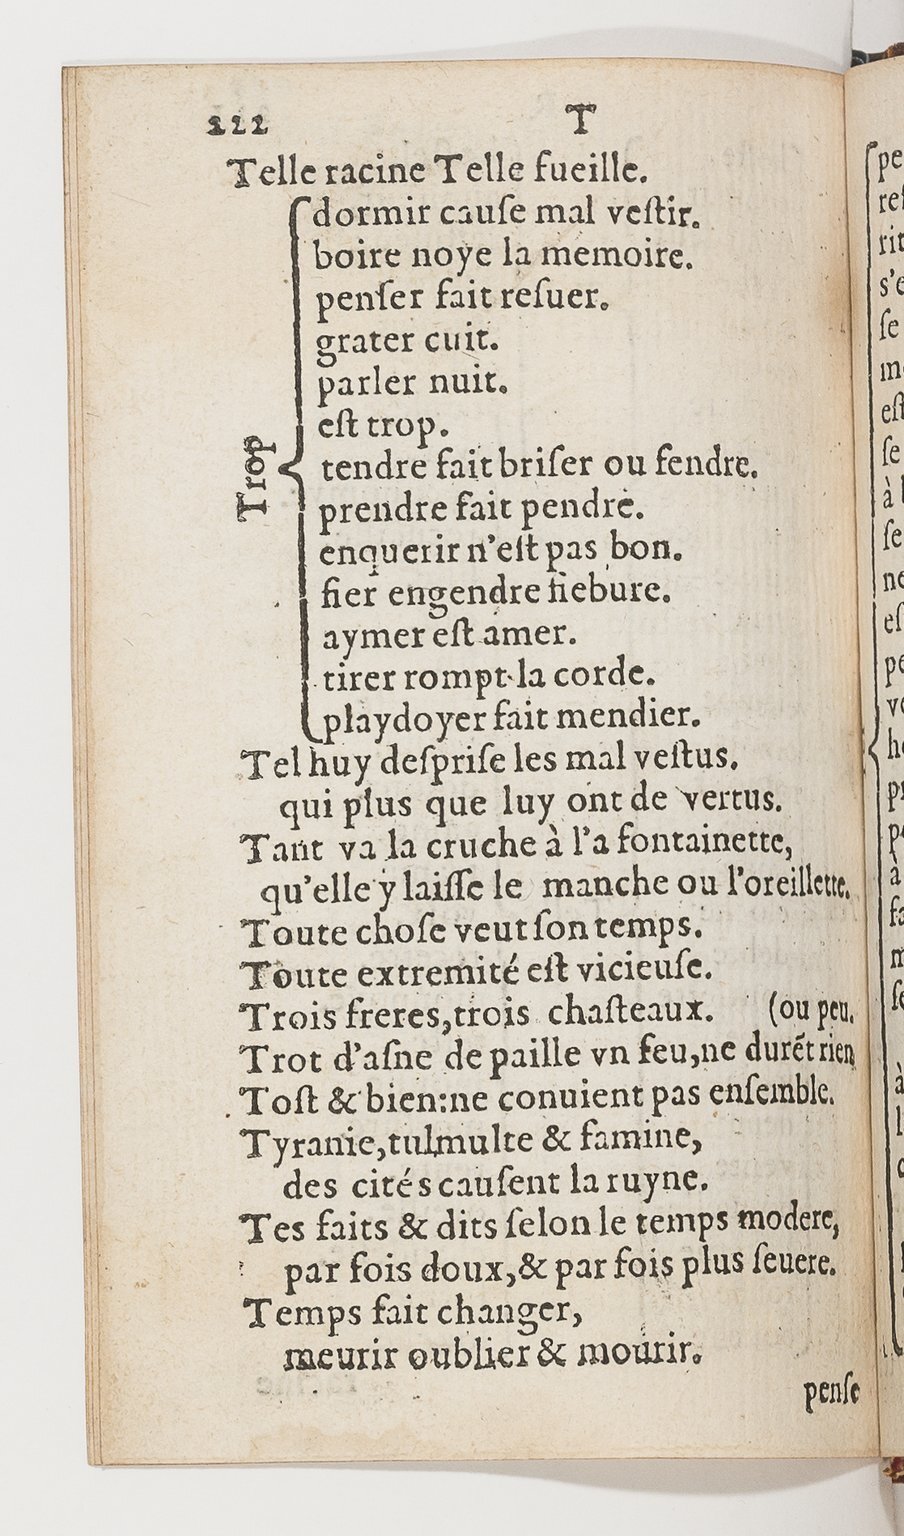 222 T
Telle racine Telle fueille.
dormir cauſe mal veſtir.
boire noye la memoire.
penſer fait reſuer.
grater cuit.
parler nuit.
eſt trop.
Trop
tendre fait briſer ou fendre.
prendre fait pendre.
enquerir n'eſt pas bon.
fier engendre fiebure.
aymer eſt amer.
tirer rompt la corde.
playdoyer fait mendier.
Tel huy deſpriſe les mal veſtus.
qui plus que luy ont de vertus.
Tant va la cruche à l'a fontainette,
qu'elle y laiſſe le manche ou l'oreillette.
Toute choſe veut ſon temps.
Toute extremité eſt vicieuſe.
Trois freres,trois chaſteaux. (ou peu.
Trot d'aſne de paille vn feu,ne durẽt rien
Toſt & bien:ne conuient pas enſemble.
Tyranie,tulmulte & famine,
des cités cauſent la ruyne.
Tes faits & dits ſelon le temps modere,
par fois doux,& par fois plus ſeuere.
Temps fait changer,
meurir oublier & mourir.
penſe